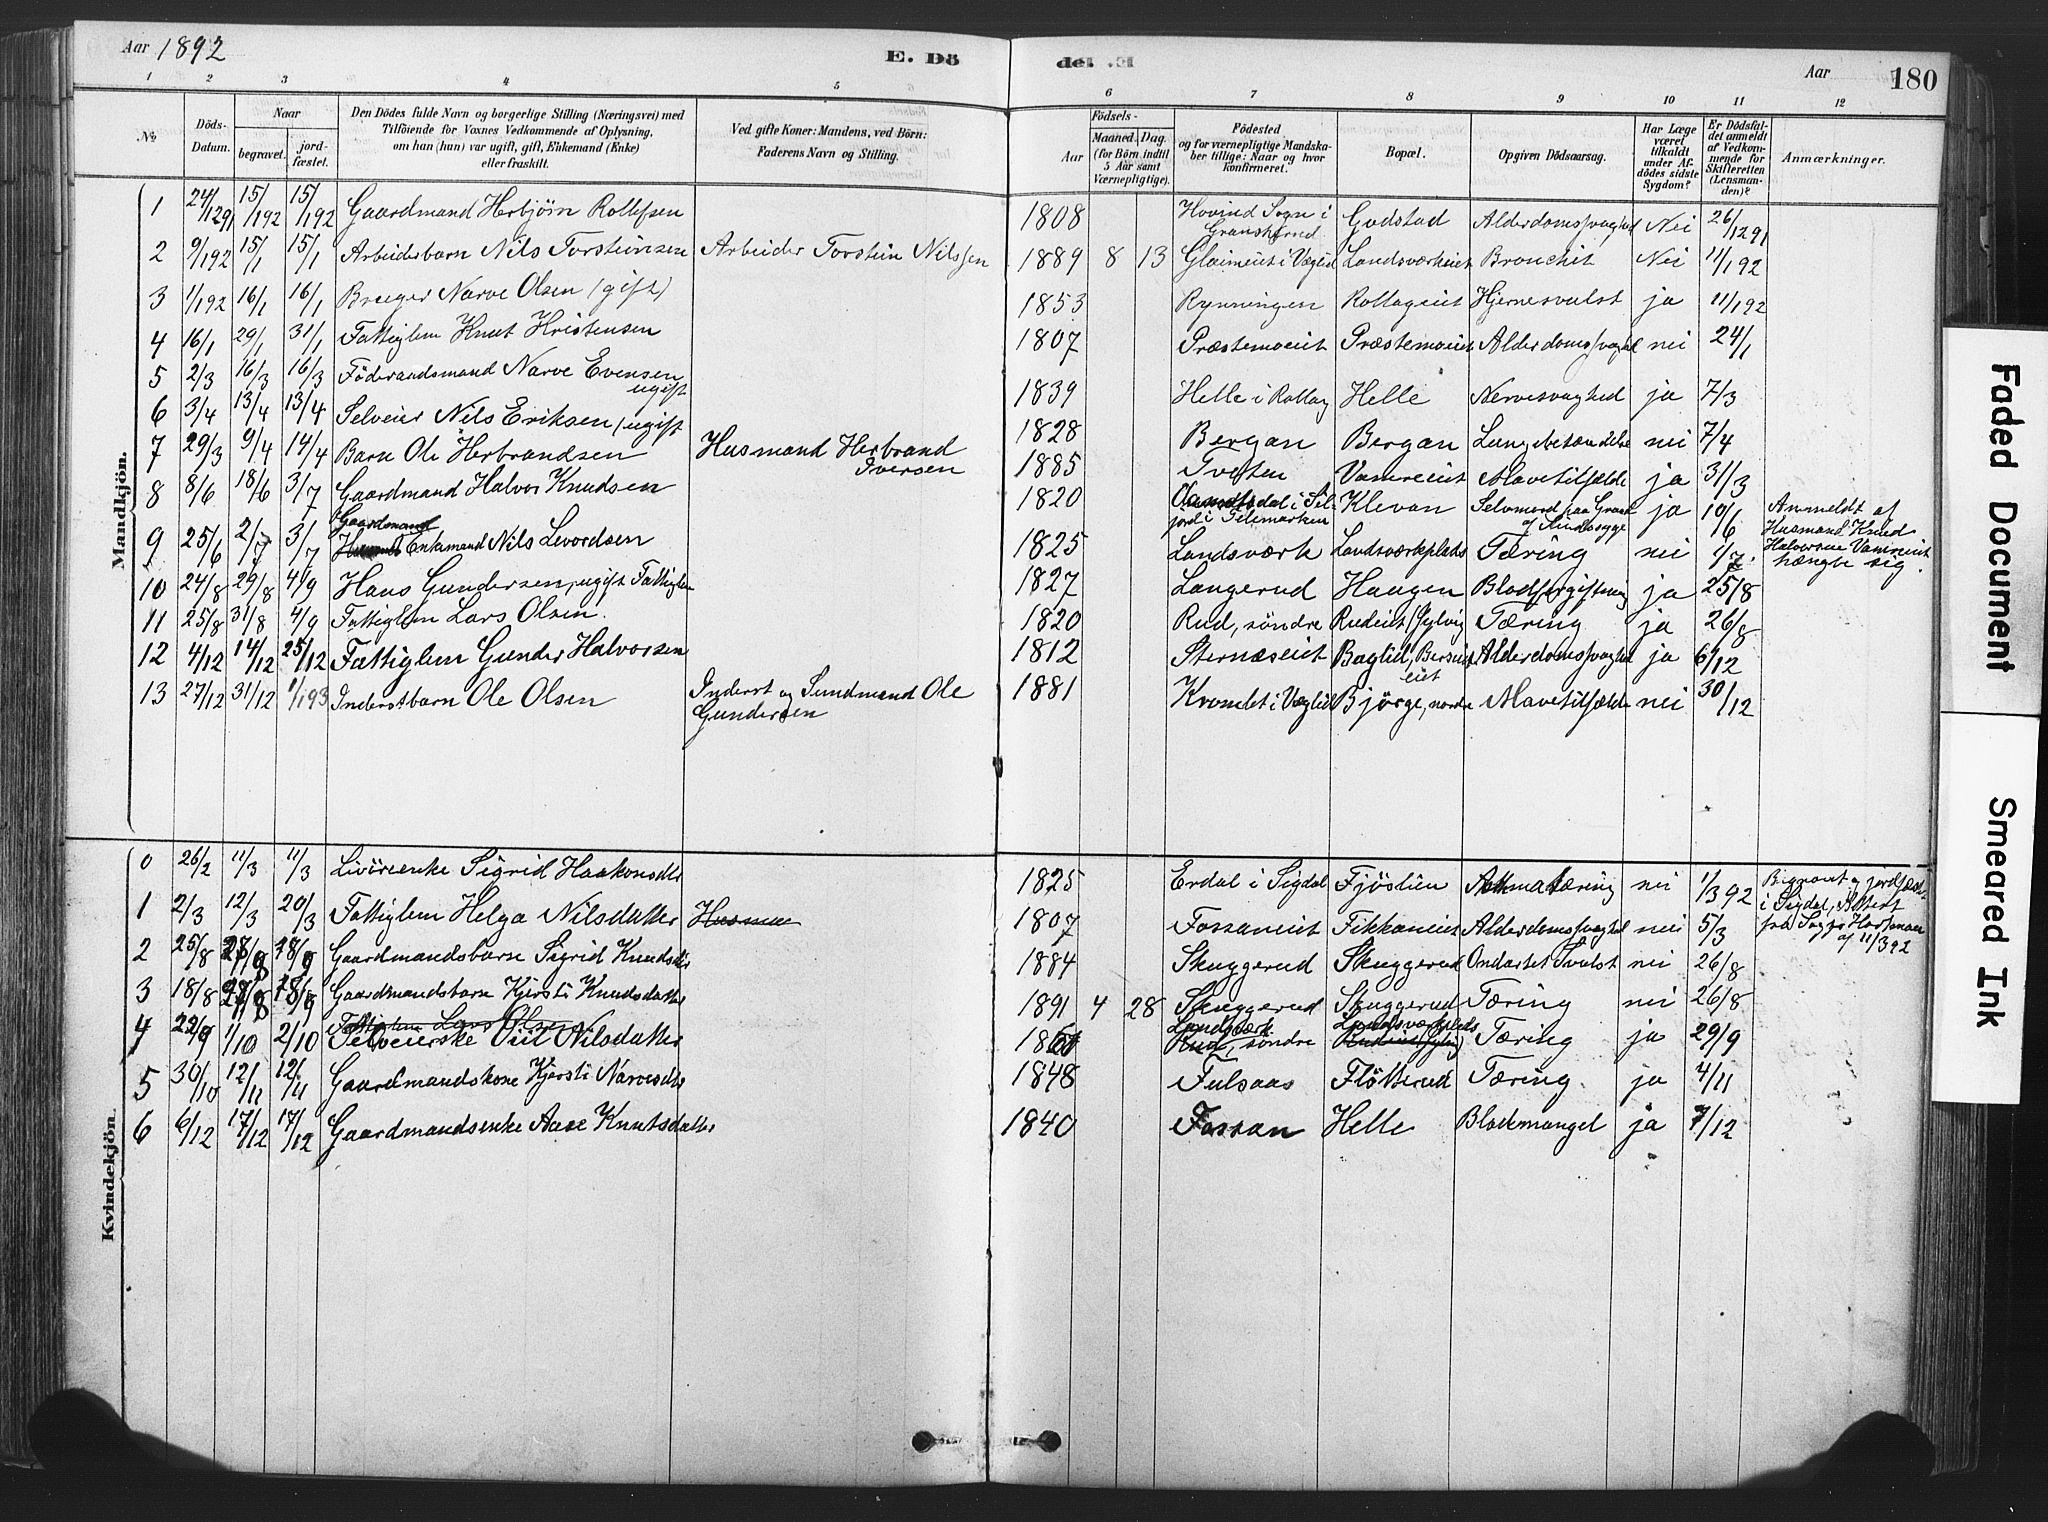 Aar 1892
E. Dö
de! .E
Aar
180
1 2 3 4 5 6 7 8 9 10 11 12
№
Döds-Datum.
Naar
begravet.
jordfæstet.
Den Dödes fulde Navn og borgerlige Stilling (Næringsvei) med
Tilföiende for Voxnes Vedkommende af Oplysning,
om han (hun) var ugift, gift, Enkemand (Enke)
eller fraskilt.
Ved gifte Koner: Mandens, ved Börn:
Faderens Navn og Stilling.
Födsels-
Aar
Maaned. Dag.
(for Börn indtil
5 Aar samt
Værnepligtige).
Födested
og for værnepligtige Mandskaber tillige: Naar og hvor
konfirmeret.
Bopæl.
Opgiven Dödsaarsag.
Har Læge været tilkaldt under Afdödes sidste Sygdom?
Er Dödsfaldet anmeldt af Vedkommende for Skifteretten (Lensmanden)?
Anmærkninger.
Mandkjön.
1 24/1291 15/192 15/192 Gaardmand Herbjörn Rollefsen 1808 Hovind Sogn i Gransherred Godstad Alderdomssvaghed Nei 26/1291
2 9/192 15/1 15/1 Arbeiderbarn Nils Torsteinsen Arbeider Torstein Nilssen 1889 8 13 Glaimeiet i Væglid Landsværkeiet Bronchit Nei 11/192
3 1/192 16/1 16/1 Bruger Narve Olsen (gift) 1853 Rynningen Rollageiet Hjernesvulst ja 11/192
4 16/1 29/1 31/1 Fattiglem Knut Kristensen 1807 Præstemoeiet Præstemoeiet Alderdomssvaghed nei 24/1
5 2/3 16/3 16/3 Föderaadsmand Narve Evensen ugift 1839 Helle i Rollag Helle Nervesvaghed ja 7/3
6 3/4 13/4 13/4 Selveier Nils Eriksen, ugift 1828 Bergan Bergan Lungebetændelse nei 7/4
7 29/3 9/4 14/4 Barn Ole Herbrandsen Husmand Herbrand Iversen 1885 Tveten Vamreiet Mavetilfælde ja 31/3
8 8/6 18/6 3/7 Gaardmand Halvor Knudsen 1820 Seljord i Telemarken Klevan Selvmord paa Grund af Sindssyge ja 10/6 Anmeldt af Husmand Knud Halvorsen Vamreiet hængte sig.
9 25/6 2/7 3/7 Gaardmand Enkemand Nils Levordsen 1825 Landsværk Landsværkplads Tæring nei 1/7
10 24/8 29/8 4/9 Hans Gundersen, ugift Fattiglem 1827 Langerud Haugen Blodforgiftning ja 25/8
11 25/8 31/8 4/9 Fattiglem Lars Olsen. 1820 Rud, söndre Rudeiet (Jylvig Tæring ja 26/8
12 4/12 14/12 25/12 Fattiglem Gunder Halvorsen 1812 Sternæseiet Baglid, Alderdomssvaghed ja 6/12
13 27/12 31/12 1/193 Inderstbarn Ole Olsen Inderst og Sundmand Ole Gundersen 1881 Kvomdet i Væglid Björge, nordre Mavetilfælde nei 30/12
Kvindekjön.
0 26/2 11/3 11/3 Livöreenke Sigrid Haakonsdtr 1825 Erdal i Sigdal Fjöslien tæring nei 1/3 92 Begravet og jordfæstet i Sigdal, Attest fra Sogpr Hartmann af 11/3 92
1 2/3 12/3 20/3 Fattiglem Helga Nilsdatter Husman 1807 Fossaneiet Fikkaneiet Alderdomssvaghed nei 5/3
2 25/8 Gaardmandsbarn Sigrid Knudsdtr 1884 Skuggerud Skuggerud Ondartet Svulst nei 26/8
3 18/8 Gaardmandsbarn Kjersti Knudsdatter 1891 4 28 Skuggerud Skuggerud Tæring nei 26/8
4 22/9 1/10 2/10 Fattiglem Lars Olsen Selveierske Nilsdatter Landsværk Rud, söndre Landsværkplads Rudeiet (Jylvig) Tæring ja 29/9
5 30/10 12/11 12/11 Gaardmandskone Kjersti Narvesdtr 1848 Fulsaas Flötterud Tæring ja 4/11
6 6/12 17/12 17/12 Gaardmandsenke Aase Knutsdatter 1840 Fossan Helle Blodmangel ja 7/12
Faded Document
Smeared Ink